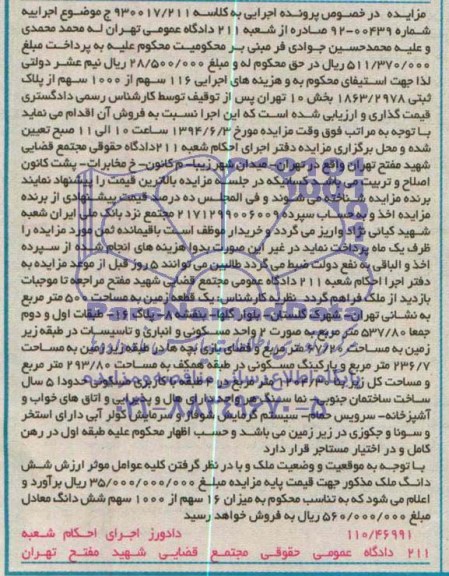 مزایده در خصوص پرونده اجرایی به کلاسه ۹۳۰۰۱۷/۲۱۱ ج موضوع اجراییه
شماره ۰۰۴۳۹-۹۲ صادره از شعبه ۲۱۱ دادگاه عمومی تهران له محمد محمدی
و علیه محمدحسین جوادی فر مبنی بر محکومیت محکوم علیه به پرداخت مبلغ
۵۱۱/۳۷۰/۰۰۰ ریال در حق محکوم له و مبلغ ۲۸/۵۰۰/۰۰۰ ریال نیم عشر دولتی
لذا جهت استیفای محکوم به و هزینه های اجرایی ۱۱۶ سهم از ۱۰۰۰ سهم از پلاک
ثبتی ۱۸۶۳/۲۹۷۸ بخش ۱۰ تهران پس از توقیف توسط کارشناس رسمی دادگستری
قیمت گذاری و ارزیابی شده است که این اجرا نسبت به فروش آن اقدام می نماید
با توجه به مراتب فوق وقت مزایده مورخ ۱۳۹۴/۶/۳ ساعت ۱۰ الی ۱۱ صبح تعیین
شده و محل برگزاری مزایده دفتر اجرای احکام شعبه ۲۱۱ دادگاه حقوقی مجتمع قضایی
شهید مفتح تهران واقع در تهران- میدان شهر زیبا- م کانون- خ مخابرات- پشت کانون
اصلاح و تربیت می باشد کسانیکه در جلسه مزایده بالاترین قیمت را پیشنهاد نمایند
برنده مزایده شناخته می شوند و فی المجلس ده درصد قیمت پیشنهادی از برنده
مزایده اخذ و به حساب سپرده ۲۱۷۱۲۹۹۰۰۶۰۰۹ مجتمع نزد بانک ملی ایران شعبه
شهید کیانی نژاد واریز می گردد و خریدار موظف است باقیمانده ثمن مورد مزایده را
ظرف یک ماه پرداخت نماید در غیر این صورت بدوا هزینه های انجام شده از سپرده
اخذ و الباقی به نفع دولت ضبط می گردد طالبین می توانند ۵ روز قبل از موعد مزایده به
دفتر اجرا احکام شعبه ۲۱۱ دادگاه عمومی مجتمع قضایی شهید مفتح مراجعه تا موجبات
بازدید از ملک فراهم گردد. نظریه کارشناس: یک قطعه زمین به مساحت ۵۰۰ متر مربع
به نشانی تهران- شهرک گلستان- بلوار گلها- بنفشه ۸- پلاک ۱۶- طبقات اول و دوم
جمعا ۵۳۷/۸۰ متر مربع به صورت ۲ واحد مسکونی و انباری و تاسیسات در طبقه زیر
زمین به مساحت ۶۷/۲۰ متر مربع و فضای بازی بچه ها در طبقه زیر زمین به مساحت
۲۳۶/۷ متر مربع و پارکینگ مسکونی در طبقه همکف به مساحت ۲۹۳/۸۰ متر مربع
و مساحت کل زیربنا متر مربع در ۴ طبقه با کاربری مسکونی حدودا ۵ سال
ساخت ساختمان جنوبی- نما سنگ هر واحد دارای هال و پذیرایی و اتاق های خواب و
آشپزخانه- سرویس حمام- سیستم گرمایش شوفاژ و سرمایش کولر آبی دارای استخر
و سونا و جکوزی در زیر زمین می باشد و حسب اظهار محکوم علیه طبقه اول در رهن
کامل و در اختیار مستاجر قرار دارد
با توجه به موقعیت و وضعیت ملک و با در نظر گرفتن کلیه عوامل موثر ارزش شش
دانگ ملک مذکور جهت قیمت پایه مزایده مبلغ ۳۵/۰۰۰/۰۰۰/۰۰۰ ریال برآورد و
اعلام می شود که به تناسب محکوم به میزان ۱۶ سهم از ۱۰۰۰ سهم شش دانگ معادل
مبلغ ۵۶۰/۰۰۰/۰۰۰ ریال به فروش خواهد رسید
۱۱۰/۴۶۹۹۱ دادورز اجرای احکام شعبه
۲۱۱ دادگاه عمومی حقوقی مجتمع قضایی شهید مفتح تهران